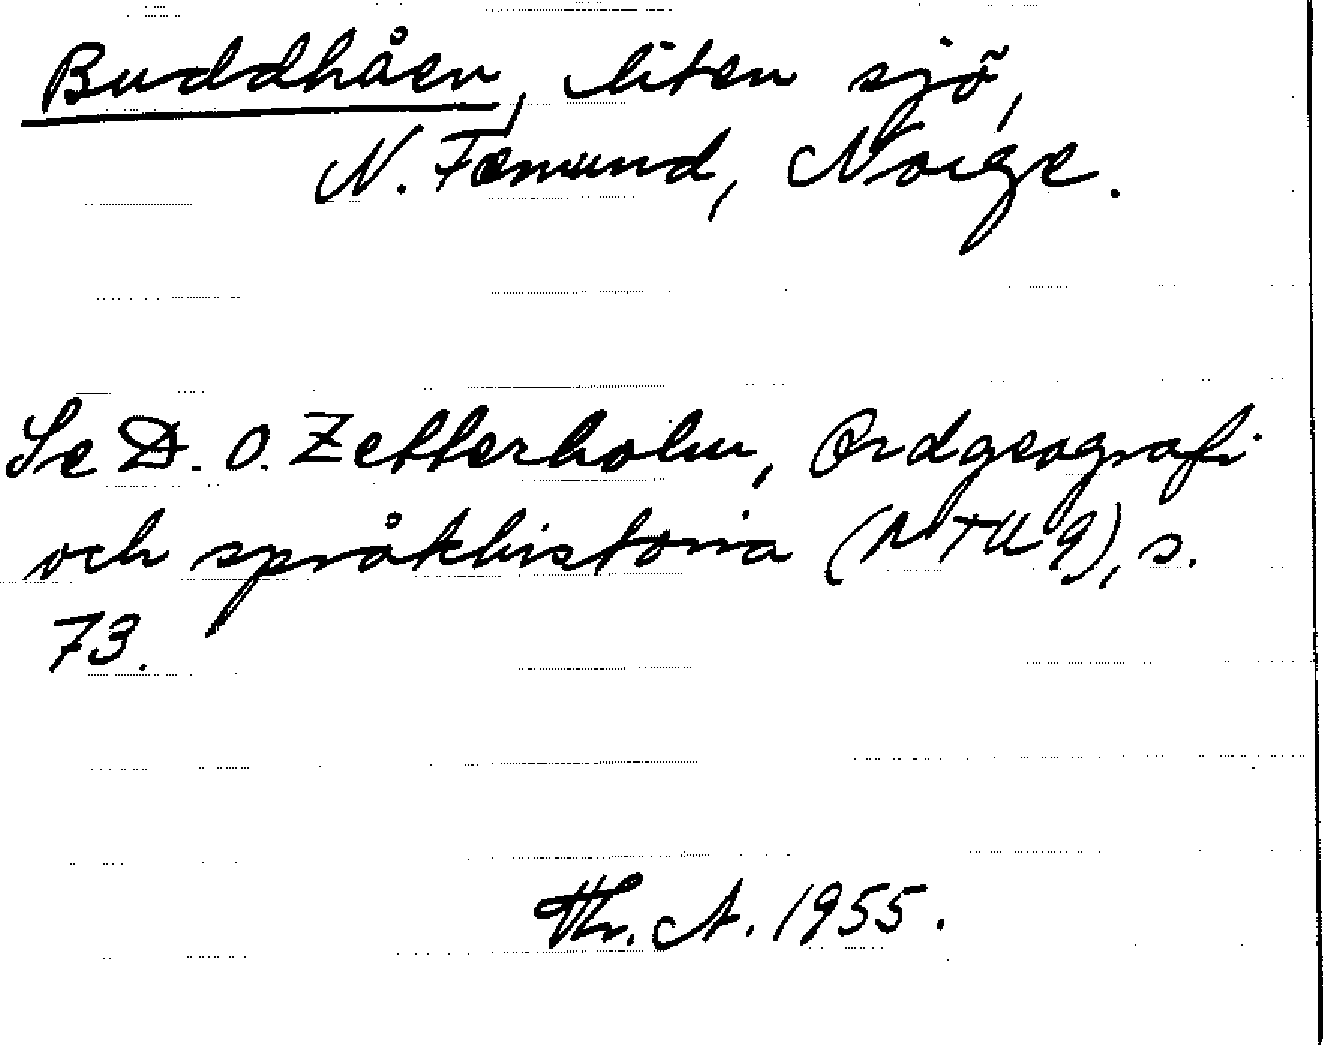 Buddhåen, liten sjö,
N. Fæmund, Norge.
Se D. O. Zetterholm, Ordgeografi
och språkhistoria (NTU 9), s.
73.
Thr. A. 1955.